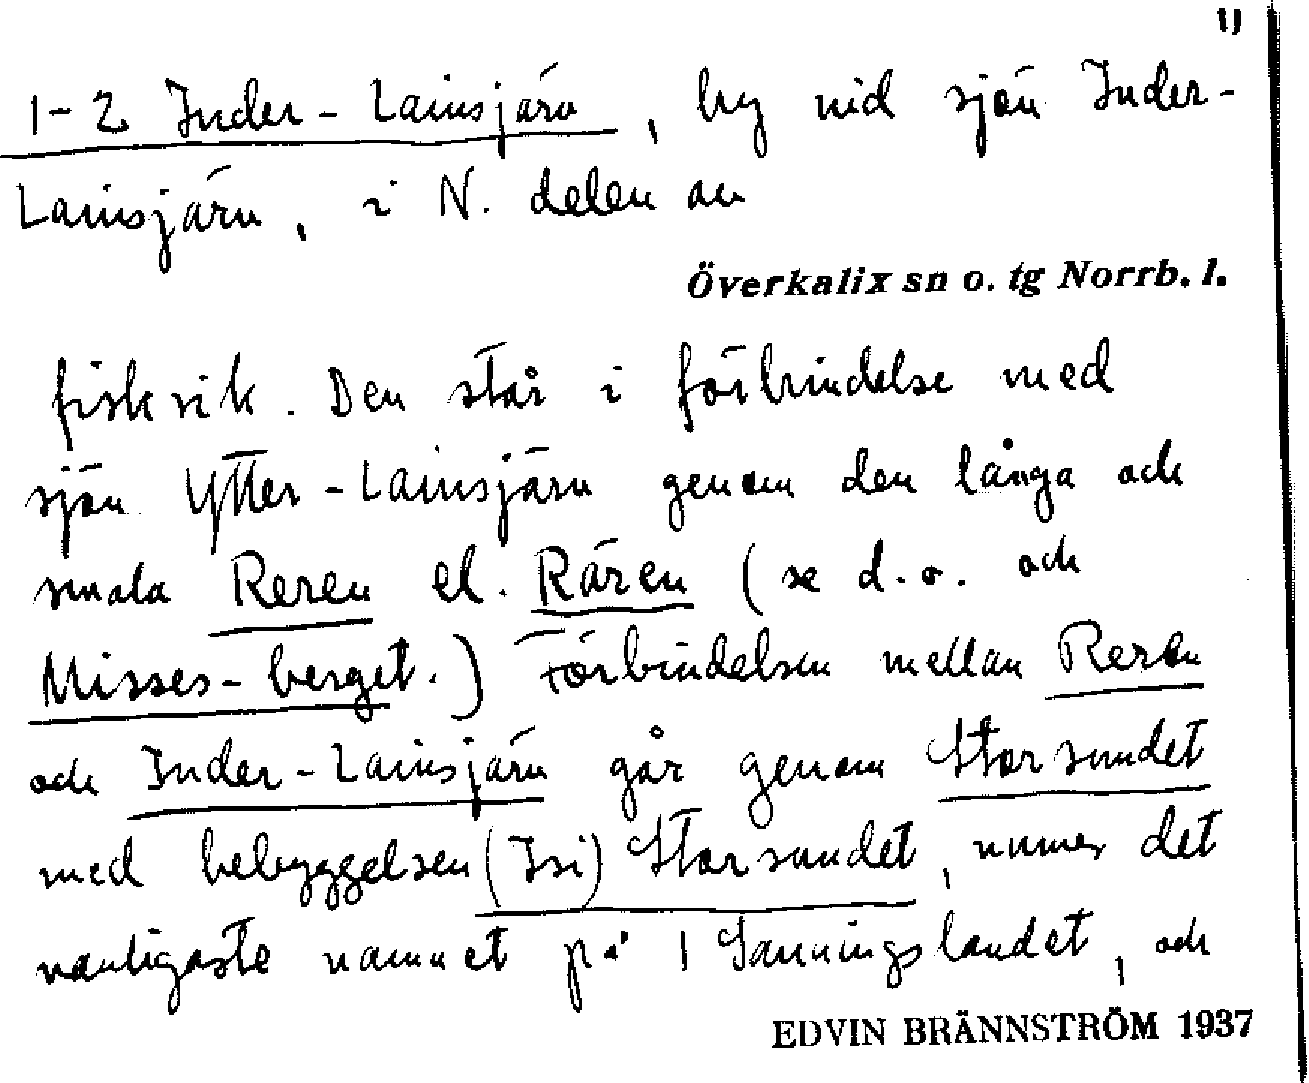 1)
1-2 Inder-Lainsjärv, by vid sjön Inder-
Lainsjärv, i N. delen av
Överkalix sn o. tg Norrb. l.
fiskrik. Den står i förbindelse med
sjön Ytter-Lainsjärv genom den långa och
smala Reren el. Rären (se d.o. och
Misses-berget.) Förbindelsen mellan Reren
och Inder-Lainsjärv går genom Storsundet
med bebyggelsen (Isi) Storsundet, numer det
vanligaste namnet på 1 Sanningslandet, och
EDVIN BRÄNNSTRÖM 1937